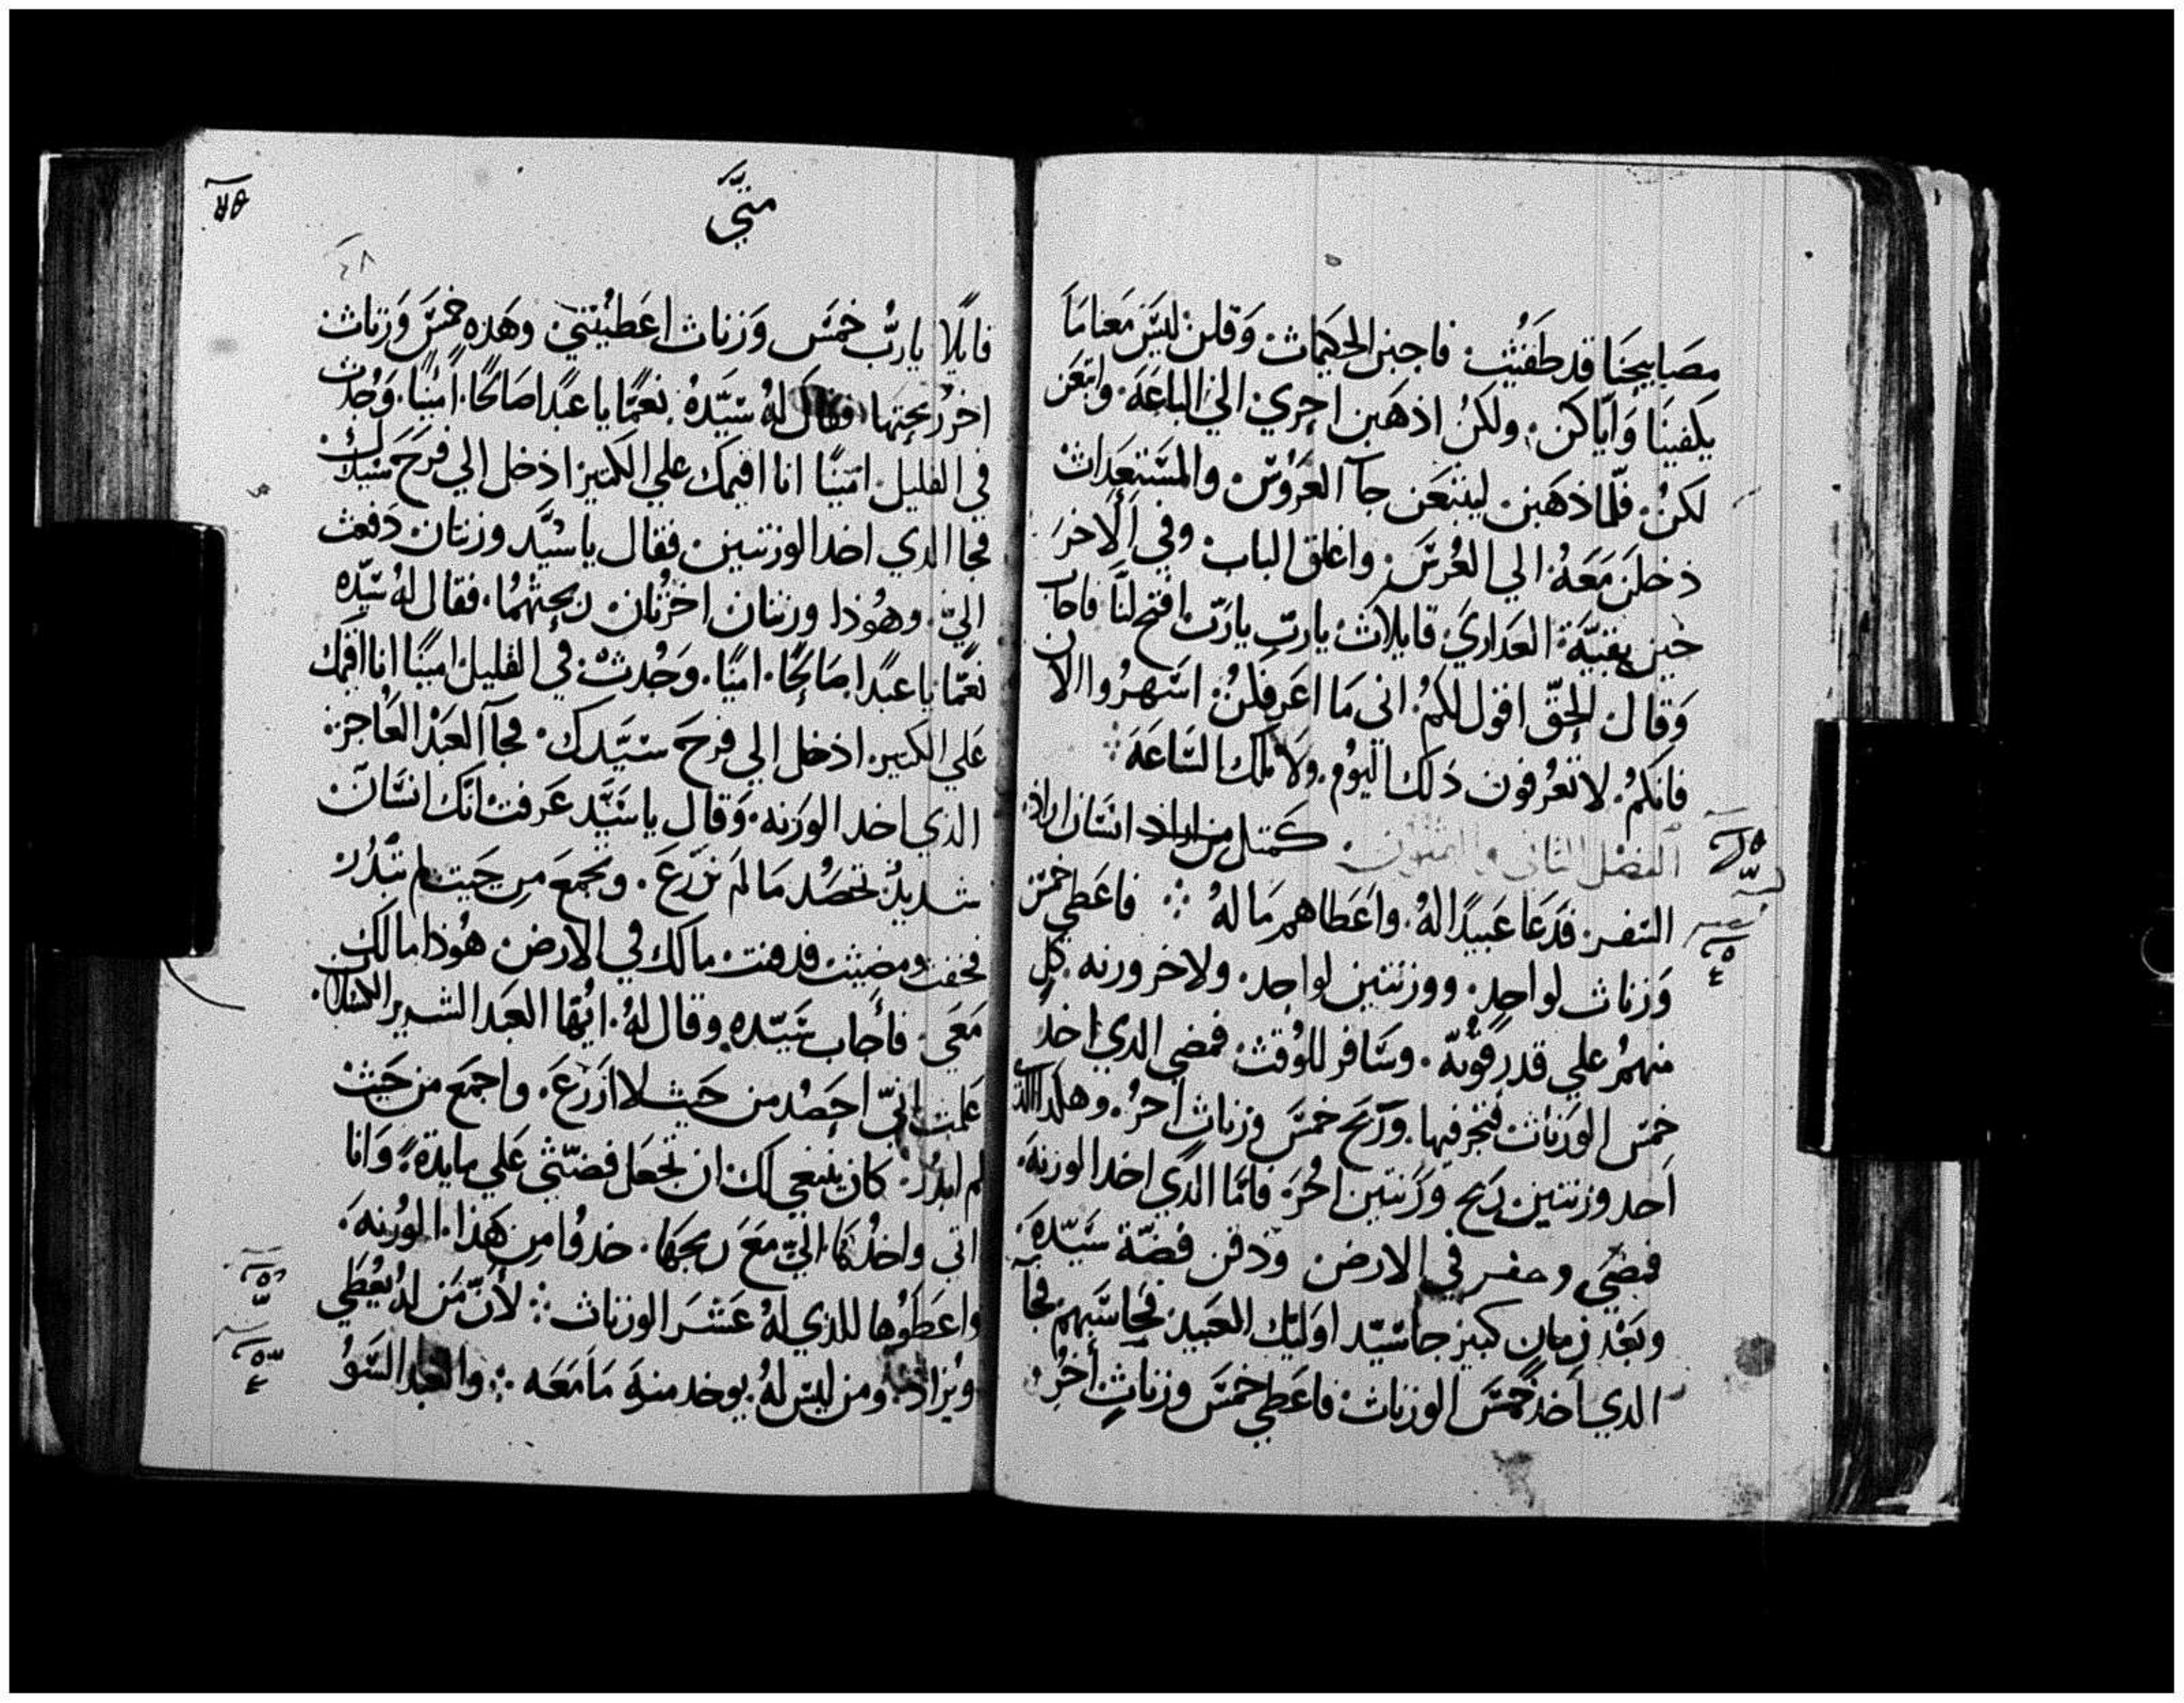 مصَابيحَنا قد طَفئِت فاجبن الحكيمات وَقلن ليَسَ مَعنا مَا
يكفينَا وَاَيّاكن. ولكنُ اذهَبن احري الي الباعَة. وابتَعن
لكنُ. فلّما ذهَبن ليبتَعن جآ العَرَوُسَ والمسَتَعِدَات
دخلَن مَعَهُ. الي العُرسَ واغلق الباب وفي اَلاِخرَ
جَين بقيَّة العَداريَ قايلات ياربّ ياربّ افتح لنَا فاجاب
وَقال الحقّ اقول لكمُ. اني مَا اعَرفكنُ. اسَهرُوا الان
فانكمُ. لا تعُرفون ذلك اليَوُم. ولا تلك السَاعَة
الفصَل الثاني والثمنون. كمَتل انسَان اراد
السَفر. فدَعَا عَبيدًا لهُ. واعَطاهم مَا لهُ ❖ فاعَطي خمسَ
وَزنات لواحدٍ. ووزنتين لواحد. ولاخر وزنه. كل
منهمُ علي قدر قوّته. وسَافر للوُقت فمضي الدي اخد
خمسَ الوَزنات فتجر فيها. وَرَبح خمسَ وزناتٍ اخرُ. وهكَدا الذي
اَخد وزنتين ربَح وَزنتين اخُرَ فامّا الدي اخد الوزنهَ.
فمضَي وحفر في الارض ودفن فضّة سَيّدهَ
وبَعْد زمان كبير جا سَيّد اوَليك العَبيد فحَاسَبهم فجآ
الدي اَخدَ خمسَّ الوزنات فاعَطي خمسَ وزناتٍ اخُرُ
متيَّ
٤٨
قايلًا ياربُّ خمسَ وَزنات اعَطيُتني وهَده خمسَ وَزنات
اخرُ ربحتها. فقال لهُ سَيّدهُ نعمًّا يا عبدًا صَالحًا. امَينًا. وَجُدت
في القليل امَينًا انا اقيمك علي الكتير ادخل الي فرحَ سَيدك
فجا الدي اخد الوزنتين فقال ياسَيَّد وزنتان دَفعت
اليّ. وهوُذا وزنتان اخرُتان ربحتهُما. فقال لهُ سَيّده
نعمًّا يا عبدًا صَالحًا. امينًا. وَجُدت في القليل امينًا انا اقيمك
عَلي الكتير ادخل الي فرحَ سَيَّدك. فجآ العَبْد العَاجز
الذي اخد الوَزنه. وَقال ياسَيَّد عَرفت انّك انسَان
شديدٌ تحصَد مَا لم تزرَعَ. وتجمَعَ من حَيت لم تبدُر
فخفت ومضيت فدفنت مالك في الارض هوُذا مالك
مَعَي. فأجاب سَيّده وقال لهُ. ايُّها العَبد الشرير الكسَلان.
علمت انيّ احصُد من حَيت لا ازرَعَ. واجمَع من حَيت
لم ابدُر. كان ينبغي لك ان تجَعَل فضّتي عَلي مايدةً. وَانا
اتي واخدُها اليّ معَ ربحهَا. خدوُا من هَذا الوُزنهَ
واعطَوُها للذي لهُ عَشرَ الوزنات ❖ لأنّ مَن لهُ يُعُطي
ويُزاد. ومن ليسَ لهُ. يوخد منهَ مَا مَعَه ❖ والعبد السَوُ